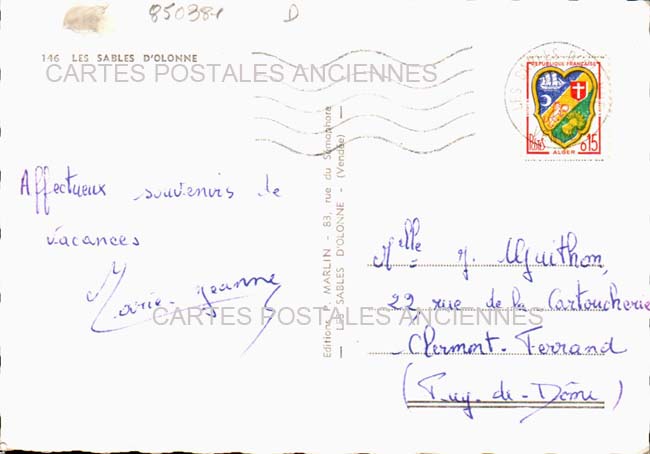 850381 D
146 LES SABLES D'OLONNE
CARTES POSTALES ANCIENNES
RÉPUBLIQUE FRANÇAISE
POSTES 0,15
ALGER
Affectueux souvenirs de
vacances
Marie-Jeanne
Editions P. MARLIN - 83, rue du Sémaphore
LES SABLES D'OLONNE - (Vendée)
Melle
22, rue de la Cartoucherie
Clermont-Ferrand
(Puy-de-Dôme)
CARTES POSTALES ANCIENNES